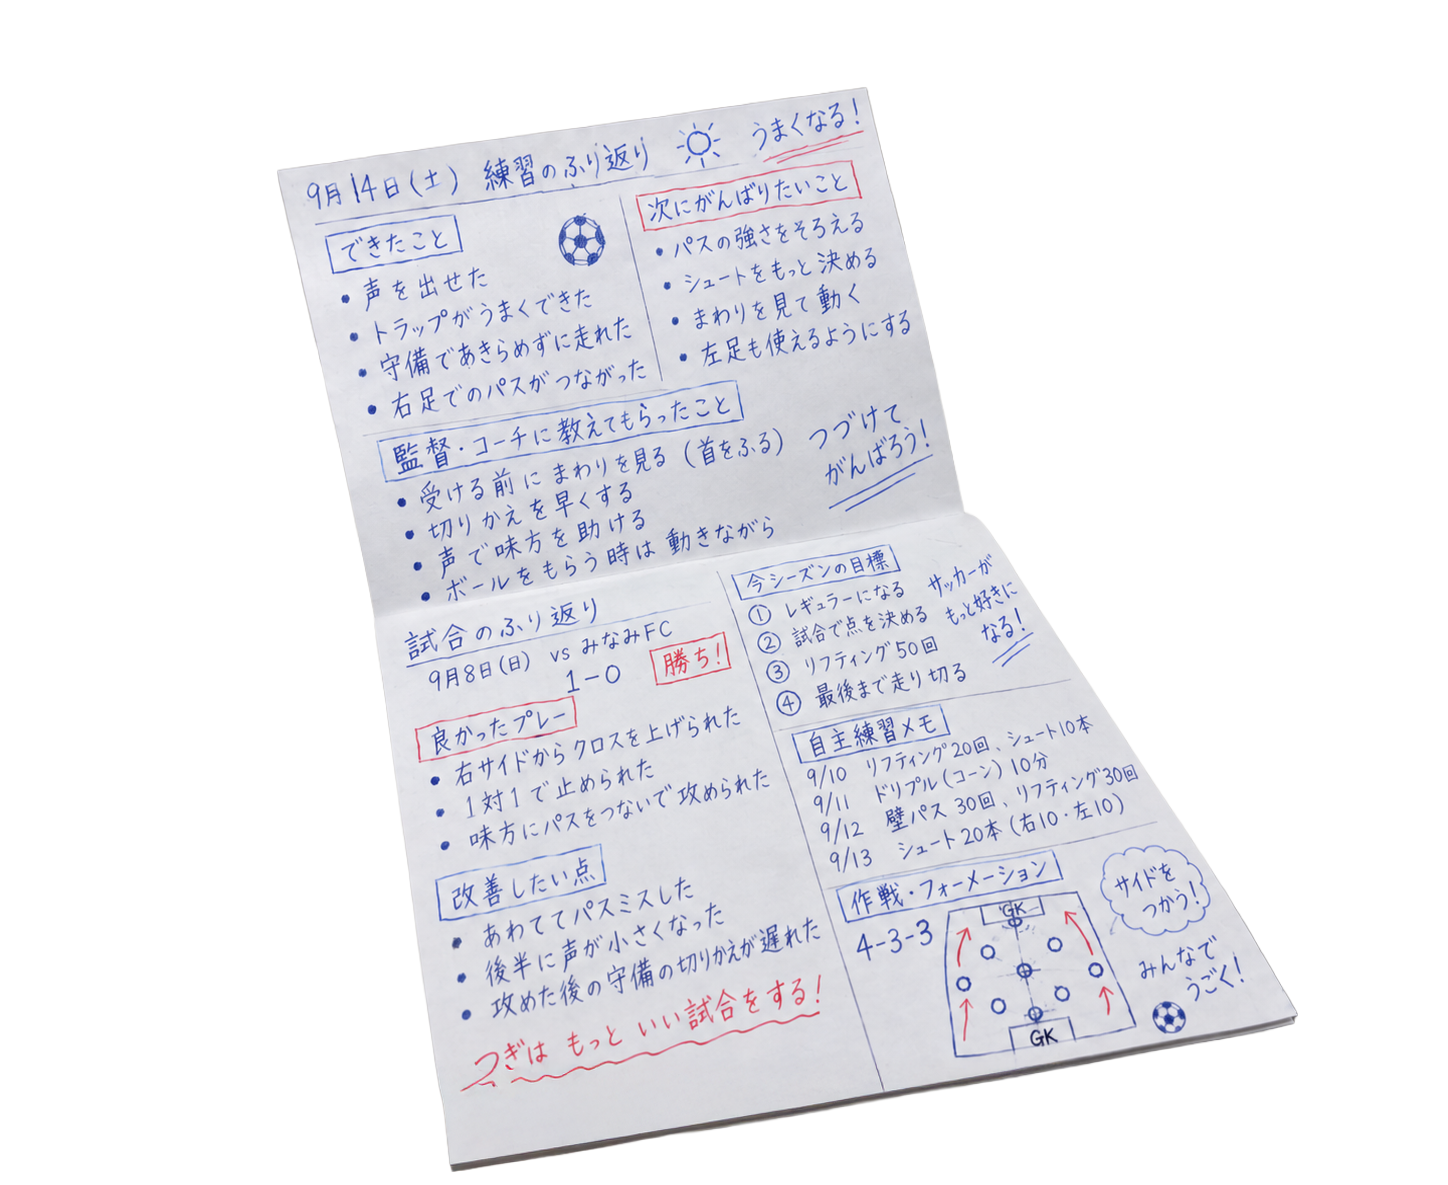 9月14日(土) 練習のふり返り
うまくなる!
できたこと
• 声を出せた
• トラップがうまくできた
• 守備であきらめずに走れた
• 右足でのパスがつながった
次にがんばりたいこと
• パスの強さをそろえる
• シュートをもっと決める
• まわりを見て動く
• 左足も使えるようにする
監督・コーチに教えてもらったこと
• 受ける前にまわりを見る (首をふる)
• 切りかえを早くする
• 声で味方を助ける
• ボールをもらう時は動きながら
つづけて
がんばろう!
試合のふり返り
9月8日(日) vs みなみFC
1-0
勝ち!
良かったプレー
• 右サイドからクロスを上げられた
• 1対1で止められた
• 味方にパスをつないで攻められた
改善したい点
• あわててパスミスした
• 後半に声が小さくなった
• 攻めた後の守備の切りかえが遅れた
つぎは もっと いい試合をする!
今シーズンの目標
① レギュラーになる
② 試合で点を決める
③ リフティング50回
④ 最後まで走り切る
サッカーが
もっと好きに
なる!
自主練習メモ
9/10 リフティング20回、シュート10本
9/11 ドリブル(コーン)10分
9/12 壁パス 30回、リフティング30回
9/13 シュート20本(右10・左10)
作戦・フォーメーション
4-3-3
GK
GK
サイドを
つかう!
みんなで
うごく!